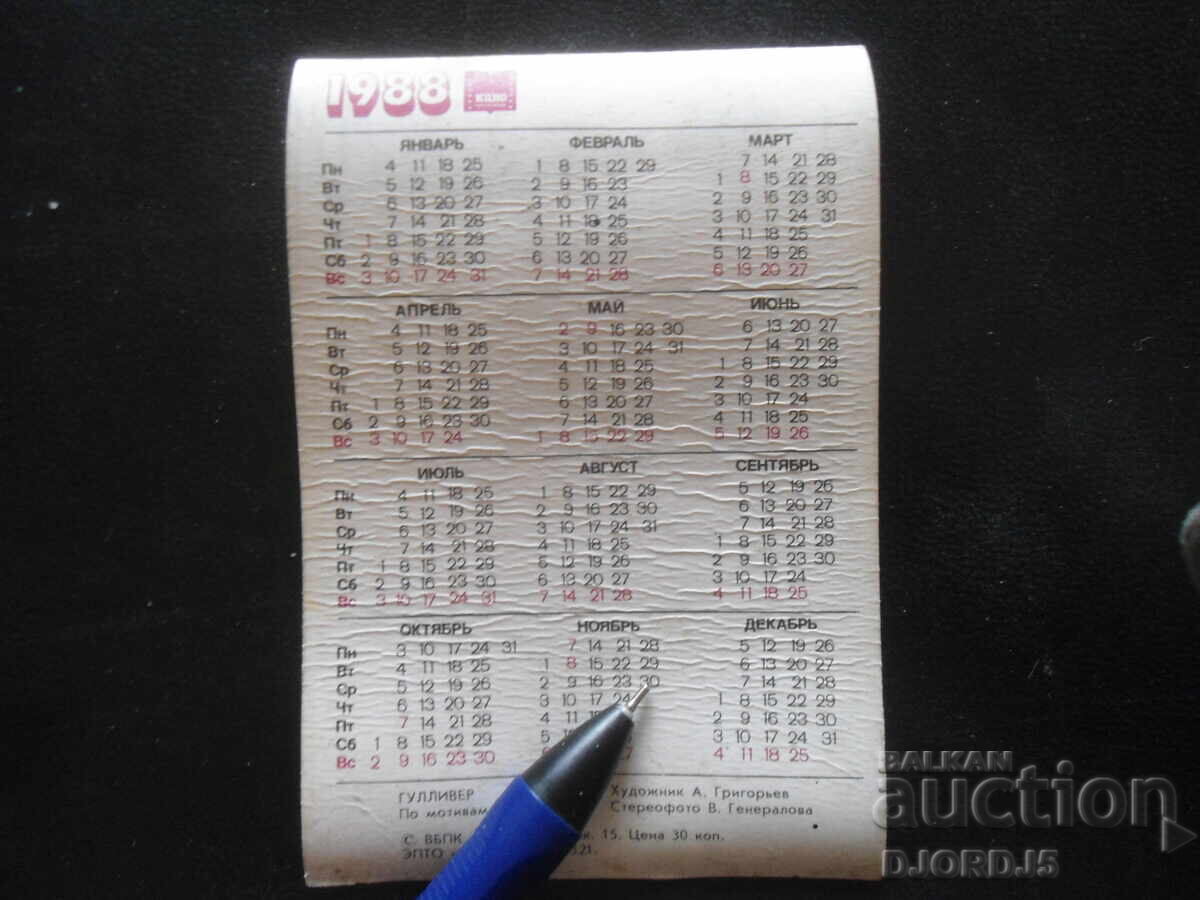 1988
ЯНВАРЬ ФЕВРАЛЬ МАРТ
Пн 4 11 18 25 1 8 15 22 29 7 14 21 28
Вт 5 12 19 26 2 9 16 23 1 8 15 22 29
Ср 6 13 20 27 3 10 17 24 2 9 16 23 30
Чт 7 14 21 28 4 11 18 25 3 10 17 24 31
Пт 1 8 15 22 29 5 12 19 26 4 11 18 25
Сб 2 9 16 23 30 6 13 20 27 5 12 19 26
Вс 3 10 17 24 31 7 14 21 28 6 13 20 27
АПРЕЛЬ МАЙ ИЮНЬ
Пн 4 11 18 25 2 9 16 23 30 6 13 20 27
Вт 5 12 19 26 3 10 17 24 31 7 14 21 28
Ср 6 13 20 27 4 11 18 25 1 8 15 22 29
Чт 7 14 21 28 5 12 19 26 2 9 16 23 30
Пт 1 8 15 22 29 6 13 20 27 3 10 17 24
Сб 2 9 16 23 30 7 14 21 28 4 11 18 25
Вс 3 10 17 24 1 8 15 22 29 5 12 19 26
ИЮЛЬ АВГУСТ СЕНТЯБРЬ
Пн 4 11 18 25 1 8 15 22 29 5 12 19 26
Вт 5 12 19 26 2 9 16 23 30 6 13 20 27
Ср 6 13 20 27 3 10 17 24 31 7 14 21 28
Чт 7 14 21 28 4 11 18 25 1 8 15 22 29
Пт 1 8 15 22 29 5 12 19 26 2 9 16 23 30
Сб 2 9 16 23 30 6 13 20 27 3 10 17 24
Вс 3 10 17 24 31 7 14 21 28 4 11 18 25
ОКТЯБРЬ НОЯБРЬ ДЕКАБРЬ
Пн 3 10 17 24 31 7 14 21 28 5 12 19 26
Вт 4 11 18 25 1 8 15 22 29 6 13 20 27
Ср 5 12 19 26 2 9 16 23 30 7 14 21 28
Чт 6 13 20 27 3 10 17 24 1 8 15 22 29
Пт 7 14 21 28 4 11 2 9 16 23 30
Сб 1 8 15 22 29 5 3 10 17 24 31
Вс 2 9 16 23 30 4 11 18 25
ГУЛЛИВЕР Художник А. Григорьев
По мотивам Стереофото В. Генералова
С. ВБПК 15. Цена 30 коп.
ЭПТО
BALKAN
auction
DJORDJ5